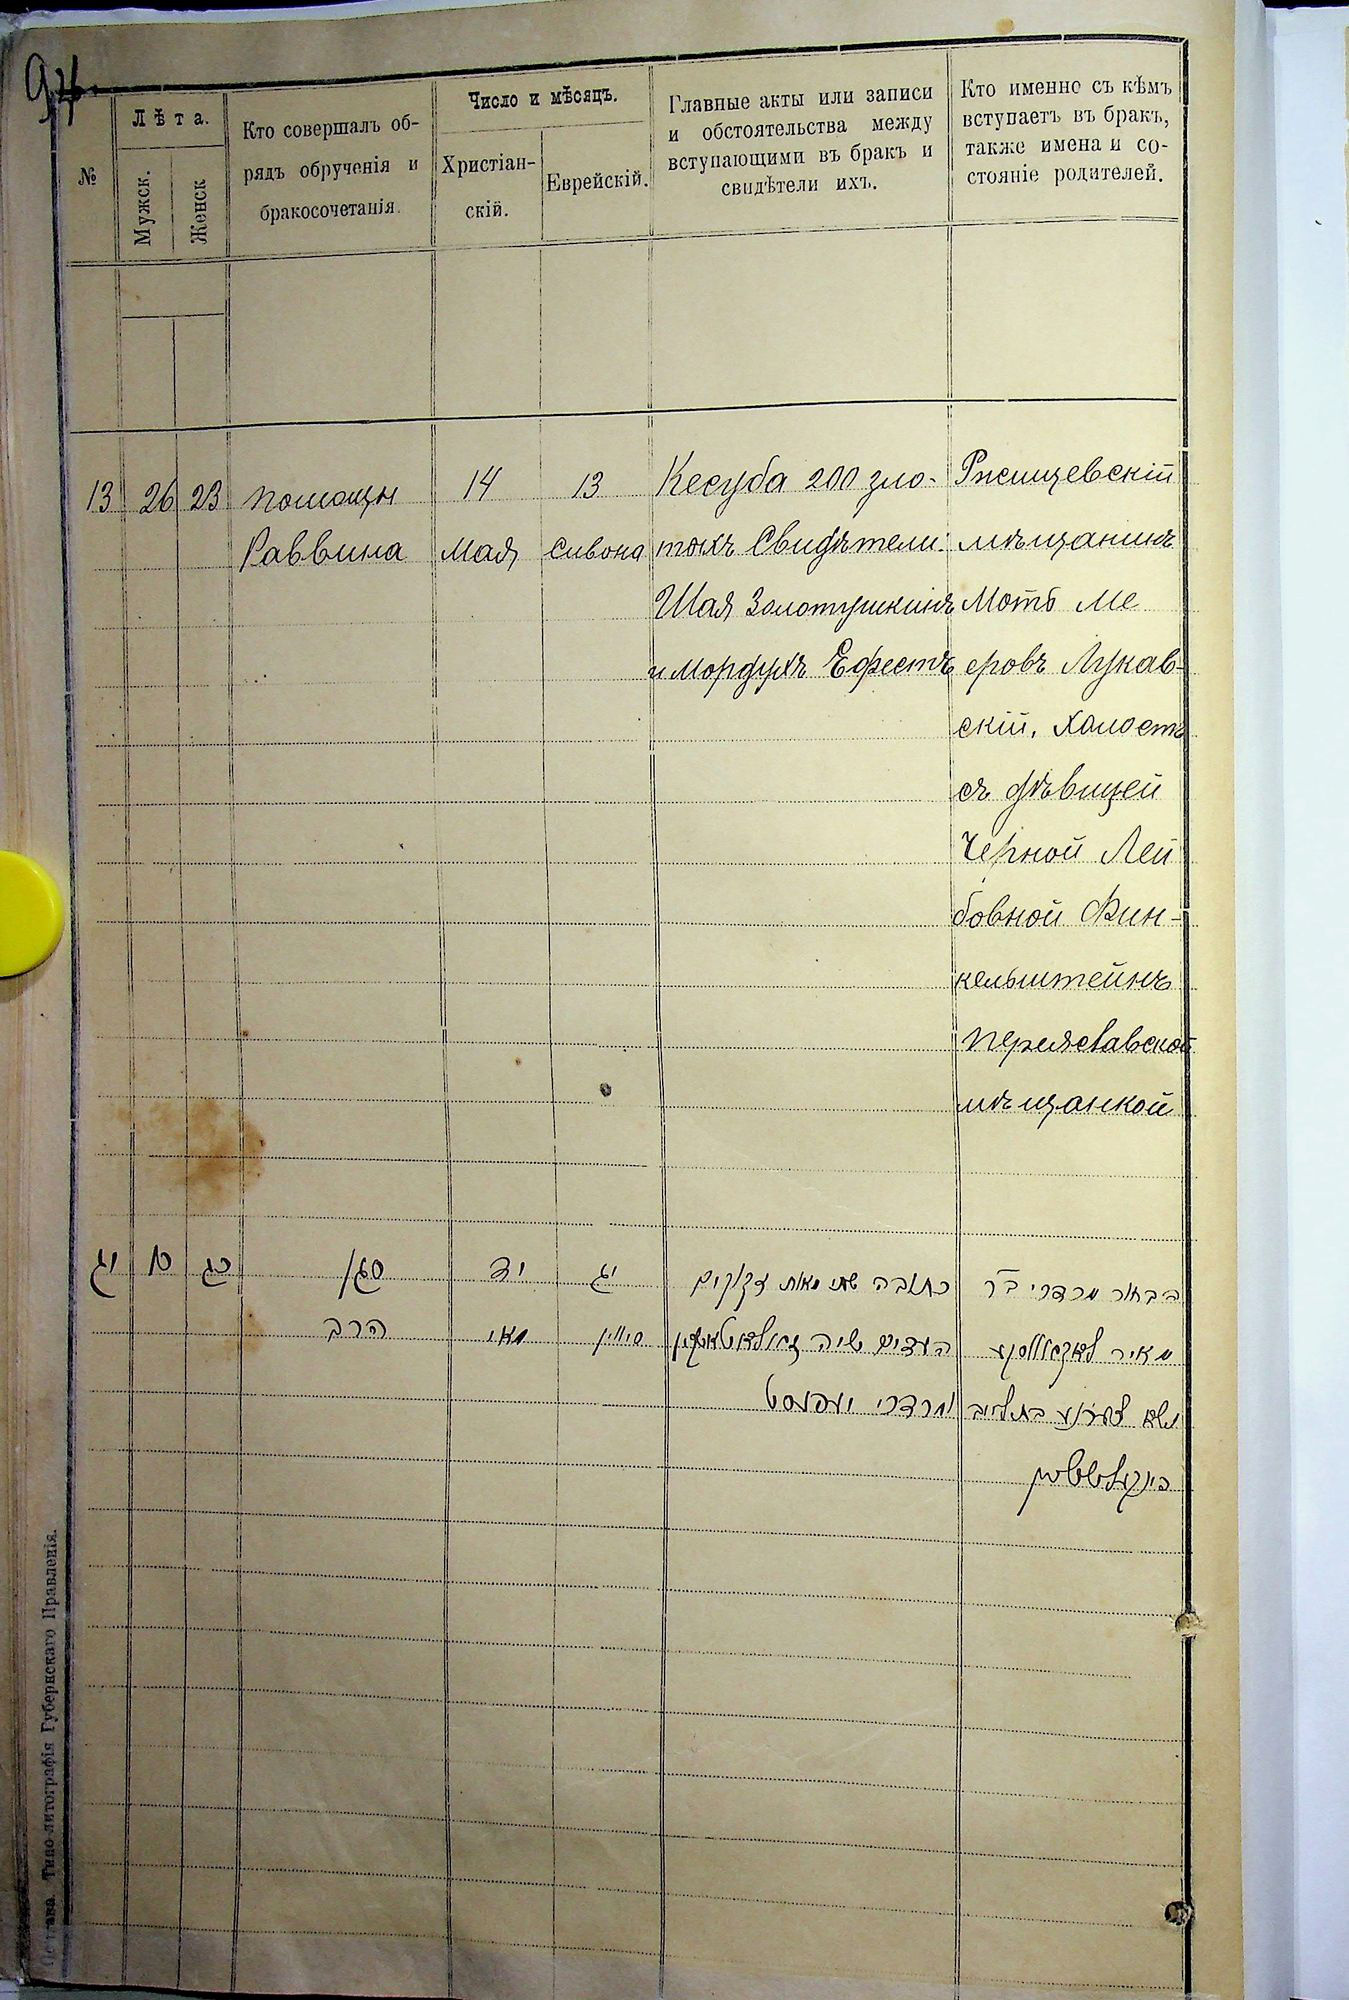 94
№
Лѣта.
Мужск.
Женск
Кто совершалъ об-
рядъ обрученія и
бракосочетанія.
Число и мѣсяцъ.
Христіан-
скій.
Еврейскій.
Главные акты или записи
и обстоятельства между
вступающими въ бракъ и
свидѣтели ихъ.
Кто именно съ кѣмъ
вступаетъ въ бракъ,
также имена и со-
стояніе родителей.
13
26
23
помощн
Раввина
14
Мая
13
Сивона
Кесуба 200 зло-
тыхъ Свидѣтели:
Шая Золотушкинъ
и Мордухъ Ефестъ
Ржищевскій
мѣщанинъ
Моть Ме
еровъ Лукав-
скій, холостъ
съ дѣвицей
Черной Лей
бовной Фин-
кельштейнъ
Переяславской
мѣщанкой
יג
כו
כג
סגן
הרב
יד
מאי
יג
סיון
כתובה שתי מאות זקוקים
העדים שיה
ומרדכי יעפעסט
הבחור מרדכי ב״ר
מאיר
נשא בת ליב
Типо-литографія Губернскаго Правленія.